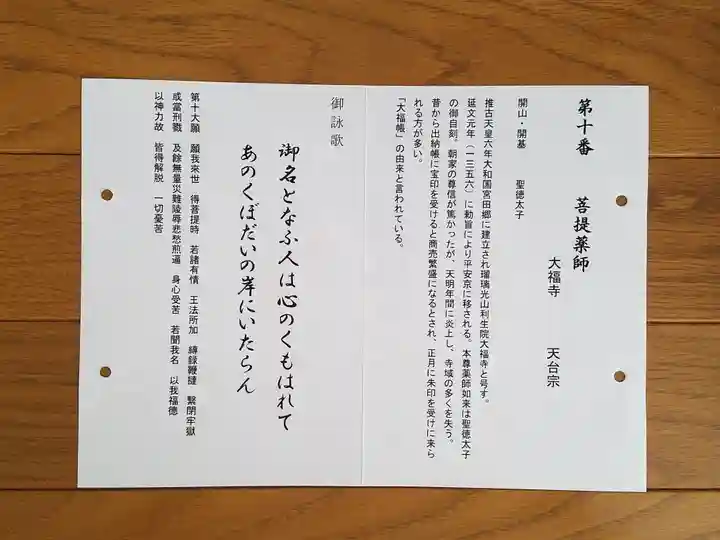 第十番　菩提薬師
大福寺　天台宗
開山・開基　聖徳太子
推古天皇六年大和国宮田郷に建立され瑠璃光山利生院大福寺と号す。
延文元年（一三五六）に勅旨により平安京に移される。本尊薬師如来は聖徳太子
の御自刻。朝家の尊信が篤かったが、天明年間に炎上し、寺域の多くを失う。
昔から出納帳に宝印を受けると商売繁盛になるとされ、正月に朱印を受けに来ら
れる方が多い。
「大福帳」の由来と言われている。
御詠歌
御名となふ人は心のくもはれて
あのくぼだいの岸にいたらん
第十大願　願我来世　得菩提時　若諸有情　王法所加　縛録鞭撻　繋閉牢獄
或當刑戮　及餘無量災難陵辱悲愁煎逼　身心受苦　若聞我名　以我福徳
以神力故　皆得解脱　一切憂苦